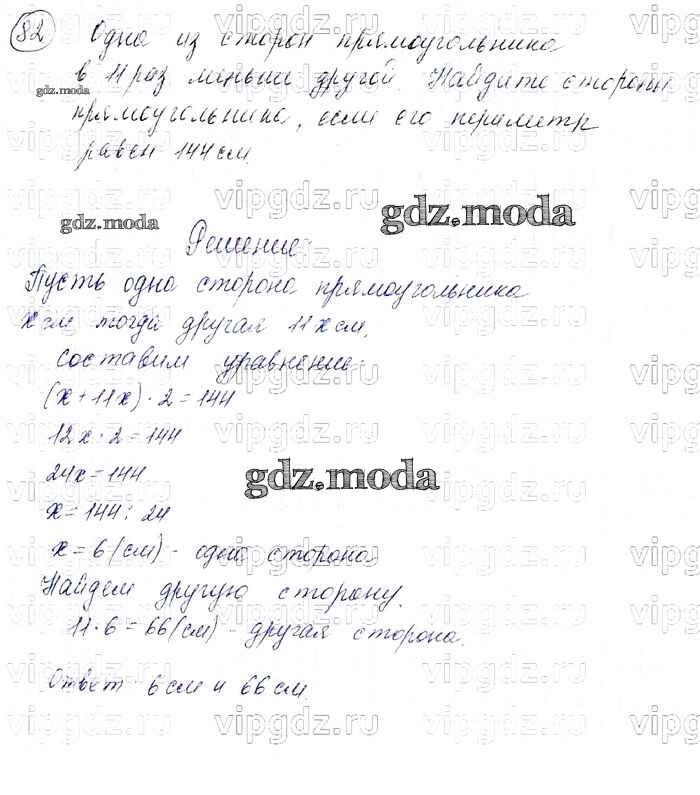 82 Одна из сторон прямоугольника
в 11 раз меньше другой. Найдите стороны
gdz.moda
прямоугольника, если его периметр
равен 144 см.
gdz.moda
gdz.moda
Решение
Пусть одна сторона прямоугольника
х см тогда другая 11х см.
составим уравнение
(х+11х)·2=144
12х·2=144
24х=144
gdz.moda
х=144:24
х=6(см) - одна сторона
Найдем другую сторону.
11·6=66(см) - другая сторона.
Ответ 6 см и 66 см.
vipgdz.ru